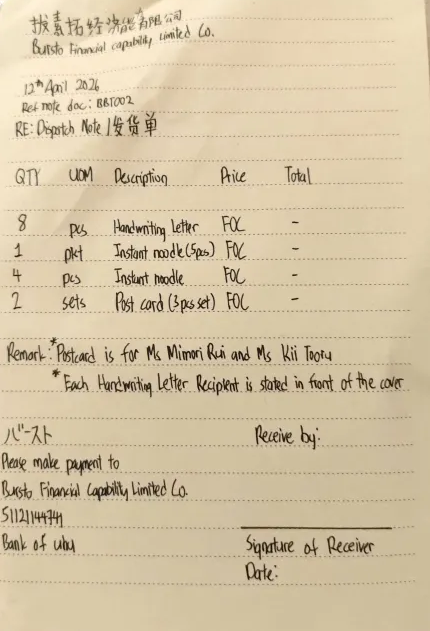 拔素拓经济能有限公司
Bursto Financial capability Limited Co.
12th April 2026
Ref note doc: BBT002
RE: Dispatch Note / 发货单
QTY UOM Description Price Total
8 pcs Handwriting Letter FOC -
1 pkt Instant noodle (5pcs) FOC -
4 pcs Instant noodle FOC -
2 sets Post card (3 pcs set) FOC -
Remark: *Postcard is for Ms Mimori Rui and Ms Kii Tooru
*Each Handwriting Letter Recipient is stated in front of the cover
バースト Receive by:
Please make payment to
Bursto Financial Capability Limited Co.
Bank of ubu Signature of Receiver
Date: